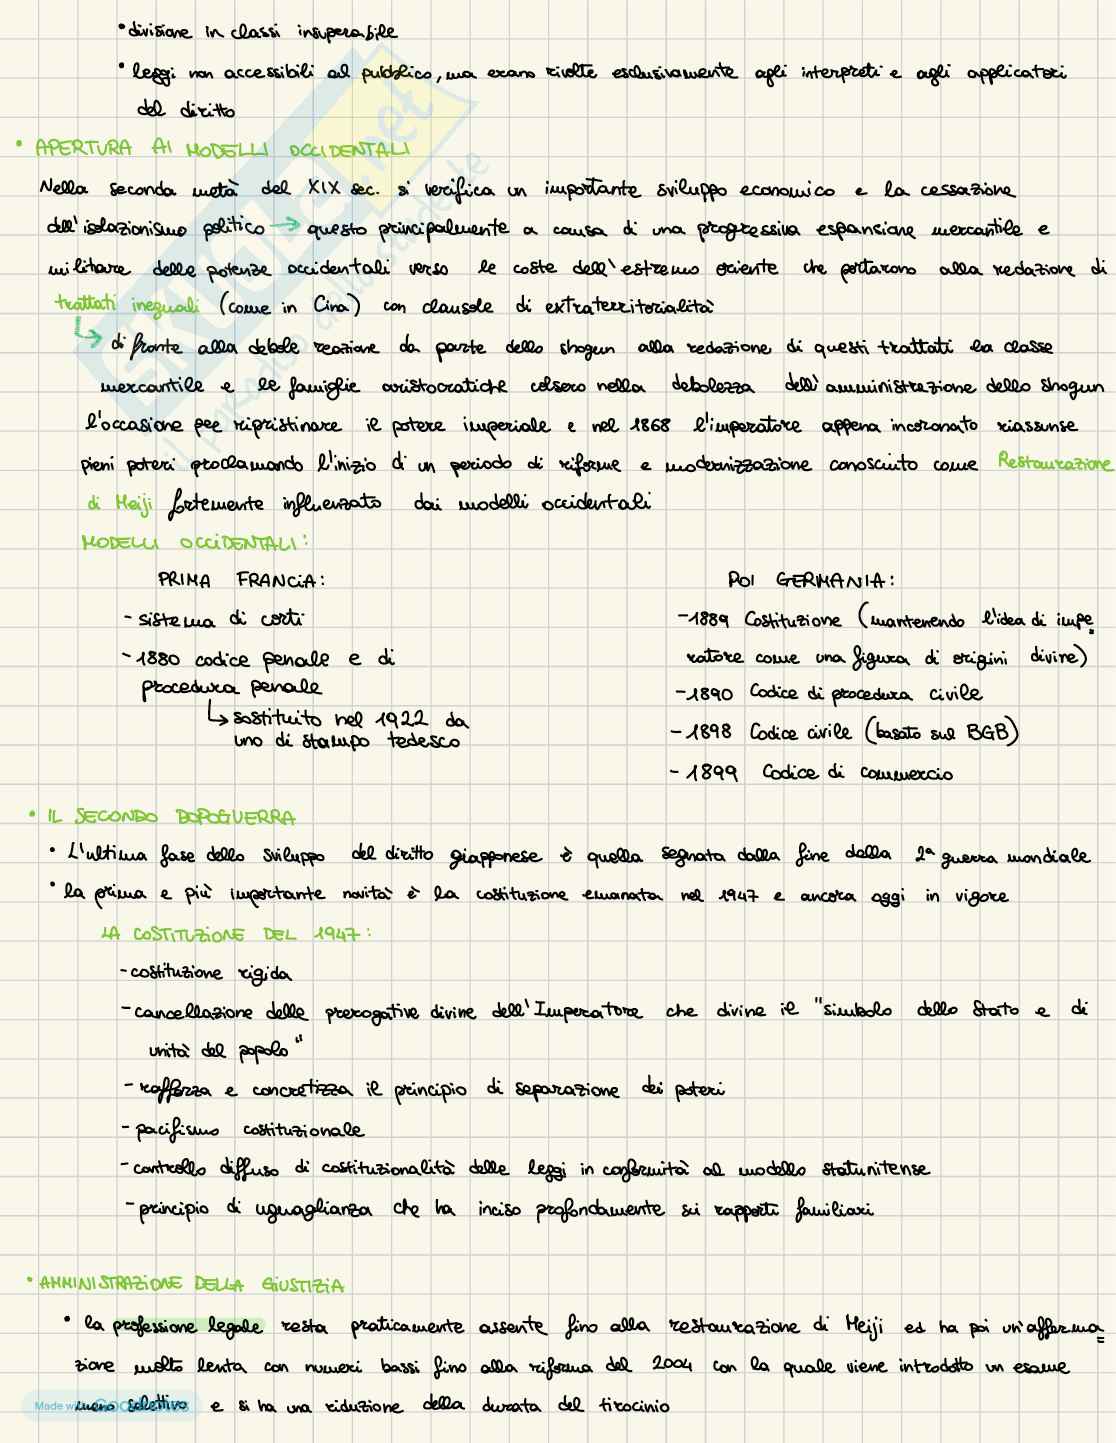 • divisione in classi insuperabile
• leggi non accessibili al pubblico, ma erano rivolte esclusivamente agli interpreti e agli applicatori
del diritto
• APERTURA AI MODELLI OCCIDENTALI
Nella seconda metà del XIX sec. si verifica un importante sviluppo economico e la cessazione
dell'isolazionismo politico → questo principalmente a causa di una progressiva espansione mercantile e
militare delle potenze occidentali verso le coste dell'estremo oriente che portarono alla redazione di
trattati ineguali (come in Cina) con clausole di extraterritorialità
↳ di fronte alla debole reazione da parte dello shogun alla redazione di questi trattati la classe
mercantile e le famiglie aristocratiche colsero nella debolezza dell'amministrazione dello shogun
l'occasione per ripristinare il potere imperiale e nel 1868 l'imperatore appena incoronato riassunse
pieni poteri proclamando l'inizio di un periodo di riforme e modernizzazione conosciuto come Restaurazione
di Meiji fortemente influenzato dai modelli occidentali
MODELLI OCCIDENTALI:
PRIMA FRANCIA:
- sistema di corti
- 1880 codice penale e di
procedura penale
↳ sostituito nel 1922 da
uno di stampo tedesco
POI GERMANIA:
- 1889 Costituzione (mantenendo l'idea di impe
ratore come una figura di origini divine)
- 1890 Codice di procedura civile
- 1898 Codice civile (basato sul BGB)
- 1899 Codice di commercio
• IL SECONDO DOPOGUERRA
• L'ultima fase dello sviluppo del diritto giapponese è quella segnata dalla fine della 2ª guerra mondiale
• la prima e più importante novità è la costituzione emanata nel 1947 e ancora oggi in vigore
LA COSTITUZIONE DEL 1947:
- costituzione rigida
- cancellazione delle prerogative divine dell'Imperatore che divine il "simbolo dello Stato e di
unità del popolo"
- rafforza e concretizza il principio di separazione dei poteri
- pacifismo costituzionale
- controllo diffuso di costituzionalità delle leggi in conformità al modello statunitense
- principio di uguaglianza che ha inciso profondamente sui rapporti familiari
• AMMINISTRAZIONE DELLA GIUSTIZIA
• la professione legale resta praticamente assente fino alla restaurazione di Meiji ed ha poi un'afferma
zione molto lenta con numeri bassi fino alla riforma del 2004 con la quale viene introdotto un esame
meno selettivo e si ha una riduzione della durata del tirocinio
Made with Goodnotes